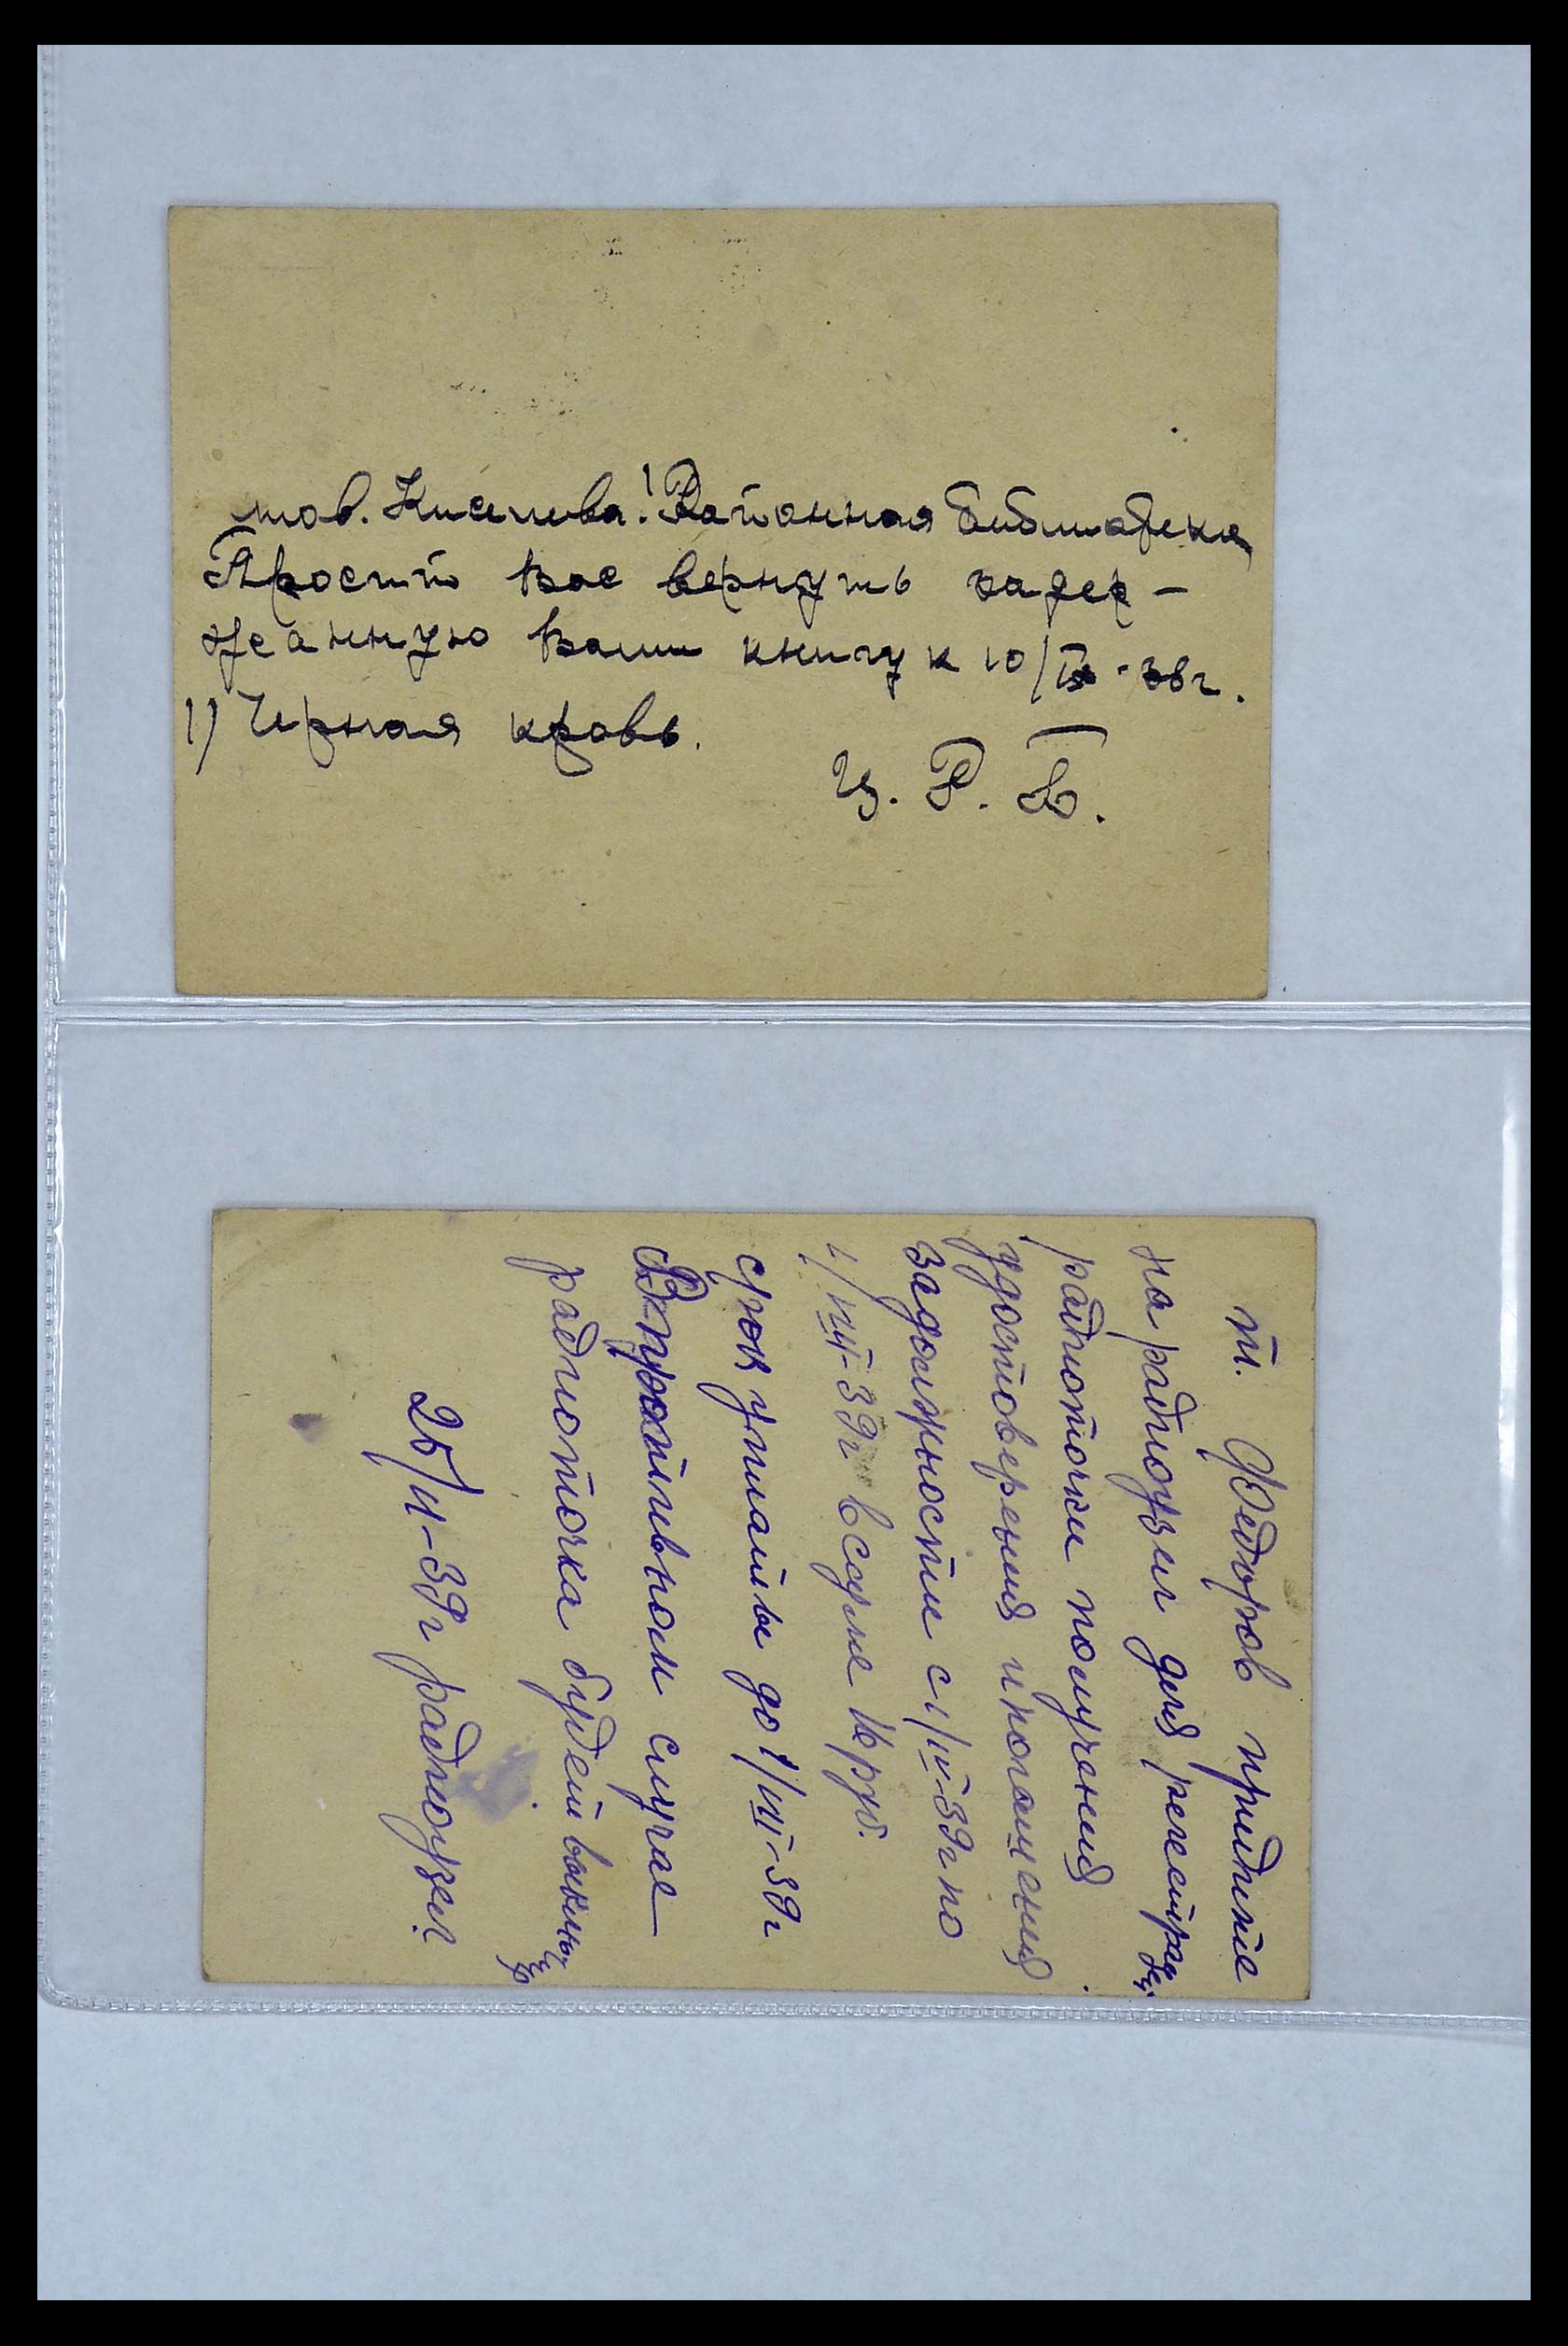 тов. Киселива! Районная библиотека
Просит вас вернуть задер-
жанную вами книгу к 10/IX-38г.
1) Чирная кровь.
Ц. Р. Б.
т. Федоров придите
на радиоузил для регестрации
радиоточки получения
удостоверения и погашения
задолжности с 1/IV-39г по
1/VIII-39г в сумме 16 руб.
срок уплаты до 1/VIII-39г
В противном случае
радиоточка будет выключ
25/VI-39г радиоузел